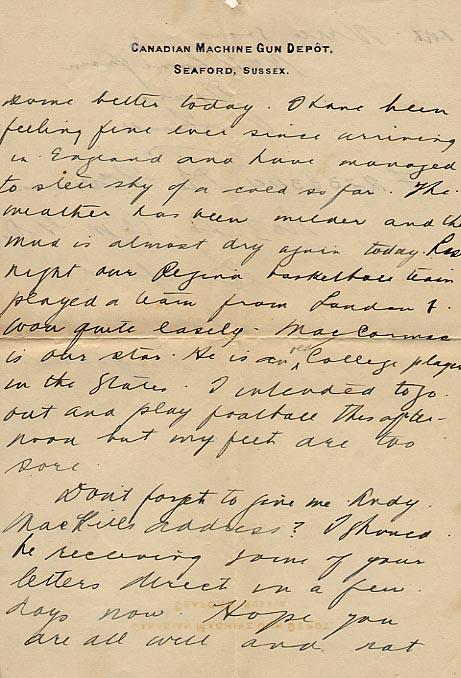 CANADIAN MACHINE GUN DEPÔT,
SEAFORD, SUSSEX.
some better today. I have been
feeling fine ever since arriving
in England and have managed
to steer shy of a cold so far. The
weather has been milder and the
mud is almost dry again today. Las
night our Regina basketball team
played a team from London &
won quite easely. MacCormac
is our star. He is an College player
in the States. I intended to go
out and play football this after-
noon but my feet are too
sore.
Don't forget to give me Andy
MacKill's address? I should
be receiving some of your
letters direct in a few
days now Hope you
are all well and not